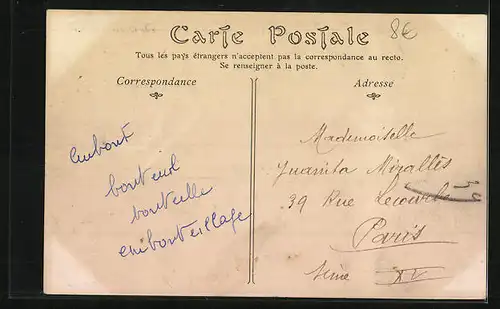 Carte Postale
8€
Tous les pays étrangers n'acceptent pas la correspondance au recto.
Se renseigner à la poste.
Correspondance
Adresse
embout
bouteuil
bouteille
embouteillage
Mademoiselle
Juanita Mirallès
39 Rue Lecourbe
Paris
Seine XV